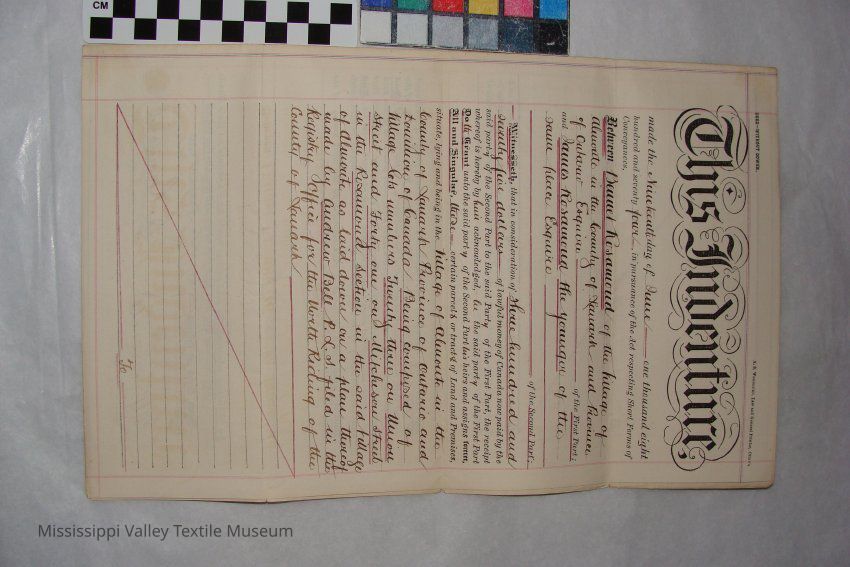 DEED—WITHOUT DOWER.
This Indenture,
made the Nineteenth day of June one thousand eight
hundred and seventy four, in pursuance of the Act respecting Short Forms of
Conveyances,
Between Daniel Rosamond of the Village of
Almonte in the County of Lanark and Province
of Ontario Esquire of the First Part;
and James Rosamond the younger of the
same place Esquire
of the Second Part;
Witnesseth, that in consideration of Three hundred and
Seventy five dollars of lawful money of Canada now paid by the
said party of the Second Part to the said Party of the First Part, the receipt
whereof is hereby by him acknowledged, he the said party of the First Part
Doth Grant unto the said party of the Second Part his heirs and assigns forever,
All and Singular, those certain parcels or tracts of Land and Premises,
situate, lying and being in the Village of Almonte in the
County of Lanark Province of Ontario and
Dominion of Canada Being composed of
Village Lots numbers Twenty three on Union
Street and Forty one on Mitcheson Street
in the Rosamond Section in the said Village
of Almonte as laid down on a plan thereof
made by Andrew Bell P.L.S. filed in the
Registry Office for the North Riding of the
County of Lanark
To
CM
Mississippi Valley Textile Museum